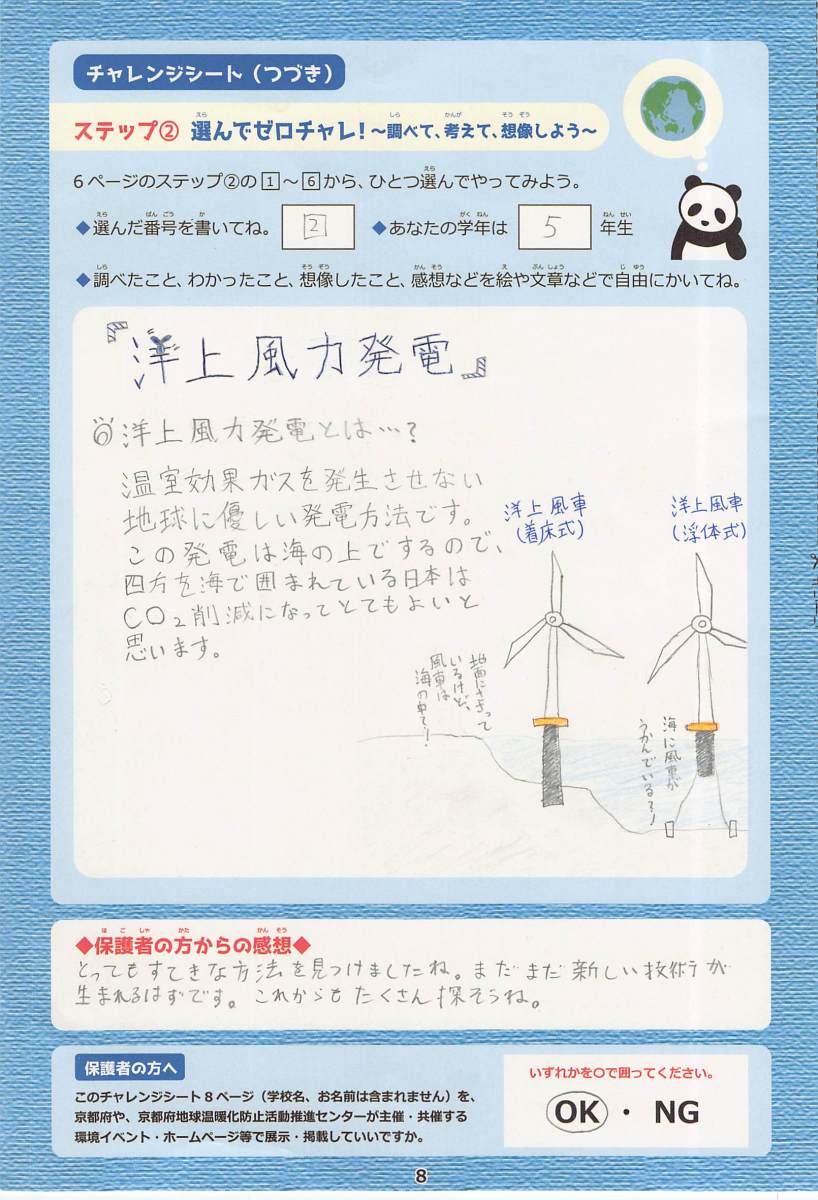 チャレンジシート(つづき)
ステップ② 選んでゼロチャレ!~調べて、考えて、想像しよう~
6ページのステップ②の1~6から、ひとつ選んでやってみよう。
◆選んだ番号を書いてね。 2 ◆あなたの学年は 5 年生
◆調べたこと、わかったこと、想像したこと、感想などを絵や文章などで自由にかいてね。
『洋上風力発電』
洋上風力発電とは…?
温室効果ガスを発生させない
地球に優しい発電方法です。
この発電は海の上でするので、
四方を海で囲まれている日本は
CO₂削減になってとてもよいと
思います。
洋上風車
(着床式)
洋上風車
(浮体式)
地面にささって
いるけど、
風車は
海の中で!
海に風車が
うかんでいる?!
◆保護者の方からの感想◆
とってもすてきな方法を見つけましたね。まだまだ新しい技術が
生まれるはずです。これからもたくさん探そうね。
保護者の方へ
このチャレンジシート8ページ(学校名、お名前は含まれません)を、
京都府や、京都府地球温暖化防止活動推進センターが主催・共催する
環境イベント・ホームページ等で展示・掲載していいですか。
いずれかを〇で囲ってください。
OK・NG
8